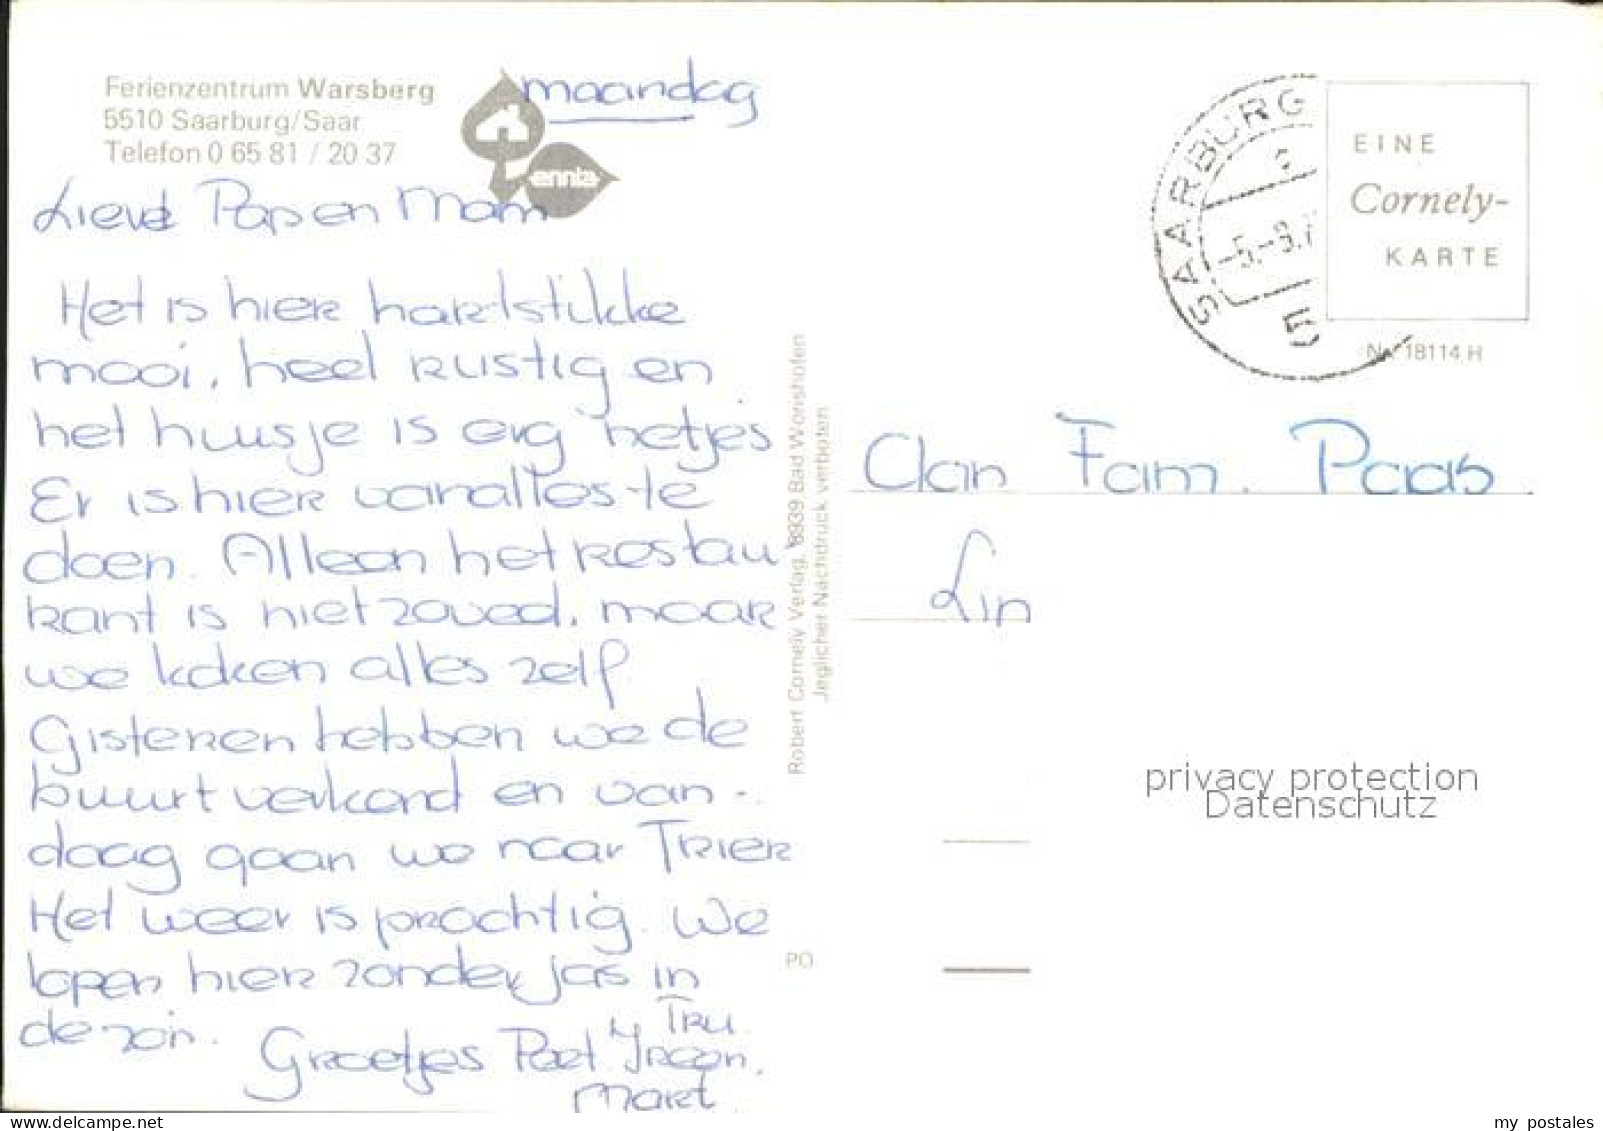 Ferienzentrum Warsberg
5510 Saarburg/Saar
Telefon 0 65 81 / 20 37
ennia
maandag
Lieve Pap en Mam
Het is hier hartstikke
mooi, heel rustig en
het huisje is erg netjes
Er is hier van alles te
doen. Alleen het restau
rant is niet zo goed, maar
we koken alles zelf.
Gisteren hebben we de
buurt verkend en van-
daag gaan we naar Trier
Het weer is prachtig. We
lopen hier zonder jas in
de zon.
Groetjes Peet. Tru
Mart
Robert Cornely Verlag, 8939 Bad Wörishofen
Jeglicher Nachdruck verboten
PO
SAARBURG
-5.-3.7
5
EINE
Cornely-
KARTE
Nr. 18114 H
Aan Fam. Paas
Lin
privacy protection
Datenschutz
my postales